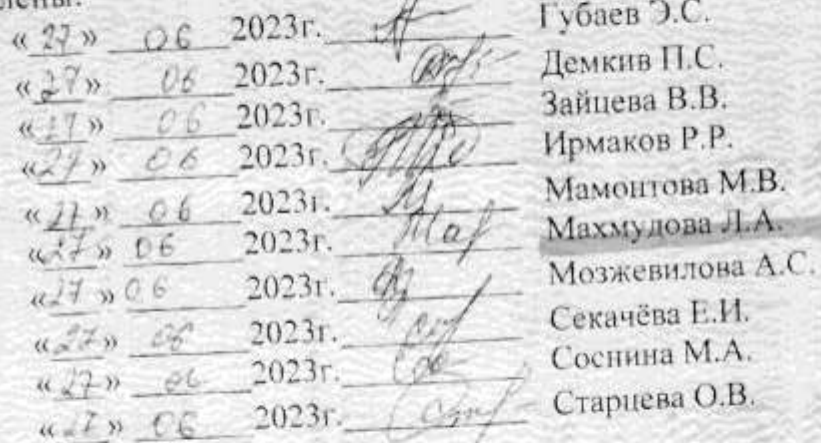 «27» 06 2023г. Губаев Э.С.
«27» 06 2023г. Демкив П.С.
«27» 06 2023г. Зайцева В.В.
«27» 06 2023г. Ирмаков Р.Р.
«27» 06 2023г. Мамонтова М.В.
«27» 06 2023г. Махмудова Л.А.
«27» 06 2023г. Мозжевилова А.С.
«27» 06 2023г. Секачёва Е.И.
«27» 06 2023г. Соснина М.А.
«27» 06 2023г. Старцева О.В.